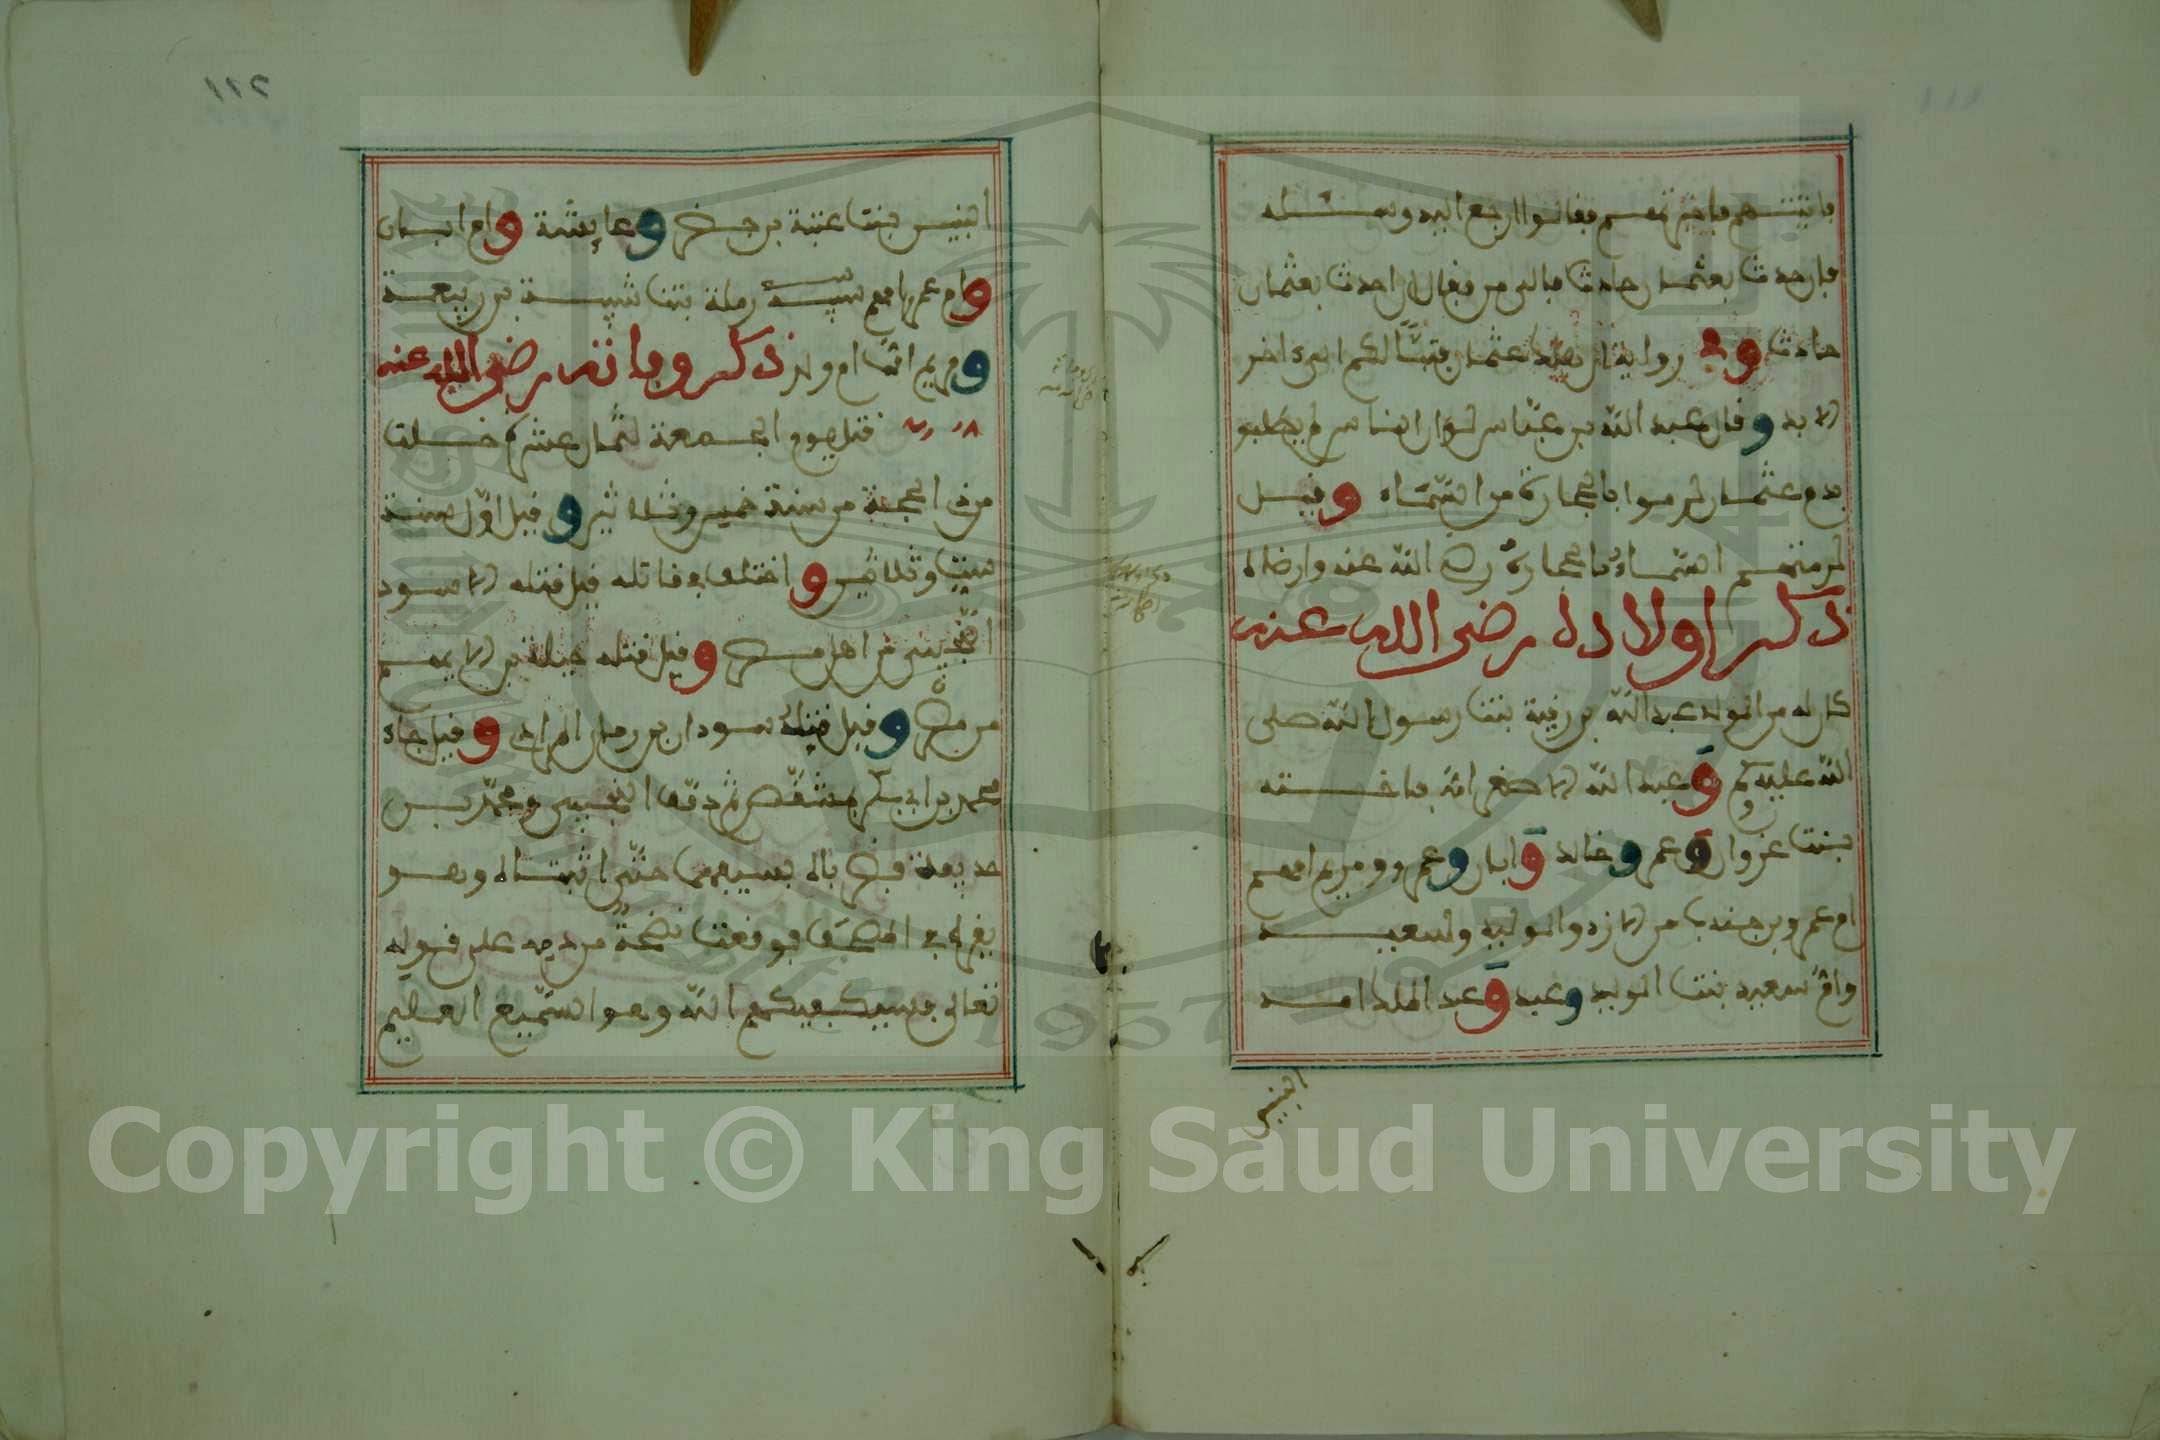 فاتيتهم فاخبرتهم فقالوا ارجع اليه وسله
فان حدث بعثمان حادث فالى من فقال ان حدث بعثمان
حادث وفي رواية ان قتل عثمان فتبا لكم اخر
الابد وقال عبد الله بن عباس لو ان الناس لم يطلبوا
بدم عثمان لرموا بالحجارة من السماء وقيل
لرمتهم السماء بالحجارة رضي الله عنه وارضاه
ذكر اولاده رضى الله عنه
كان له من الولد عبد الله بن رقية بنت رسول الله صلى
الله عليه وسلم وعبد الله الاصغر امه فاختة
بنت غزوان وعمر وخالد وابان وعمرو ومريم امهم
ام عمرو بن جندب من الازد والوليد وسعيد
وام سعيد بنت الوليد وعبد الملك امه
البنين
٢١١
البنين بنت عيينة بن حصن وعايشة وام ابان
وام عمرو امهم رملة بنت شيبة بن ربيعة
ومريم امها ام ولد ذكر وفاته رضى الله عنه
قتل يوم الجمعة لثمان عشرة خلت
من ذي الحجة من سنة خمس وثلاثين وقيل اول سنة
ست وثلاثين واختلف في قاتله فقيل قتله الاسود
التجيبي من اهل مصر وقيل قتله جبلة بن الايهم
من مصر وقيل قتله سودان بن رومان المرادي وقيل جاه
محمد بن ابي بكر بمشقص ثم دقه التجيبي ومحمد بن
حذيفة فضرباه بسيفهما حتى اثبتاه وهو
يقرا في المصحف فوقعت نضحة من دمه على قوله
تعالى فسيكفيكهم الله وهو السميع العليم
Copyright © King Saud University
1957